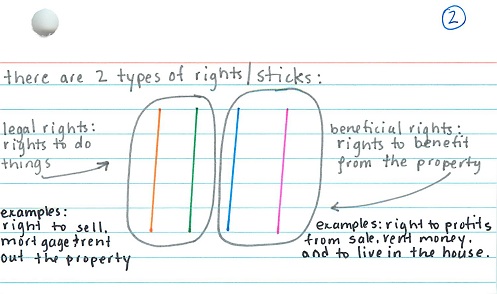 2
there are 2 types of rights/sticks:
legal rights:
rights to do
things
beneficial rights:
rights to benefit
from the property
examples:
right to sell,
mortgage & rent
out the property
examples: right to profits
from sale, rent money,
and to live in the house.